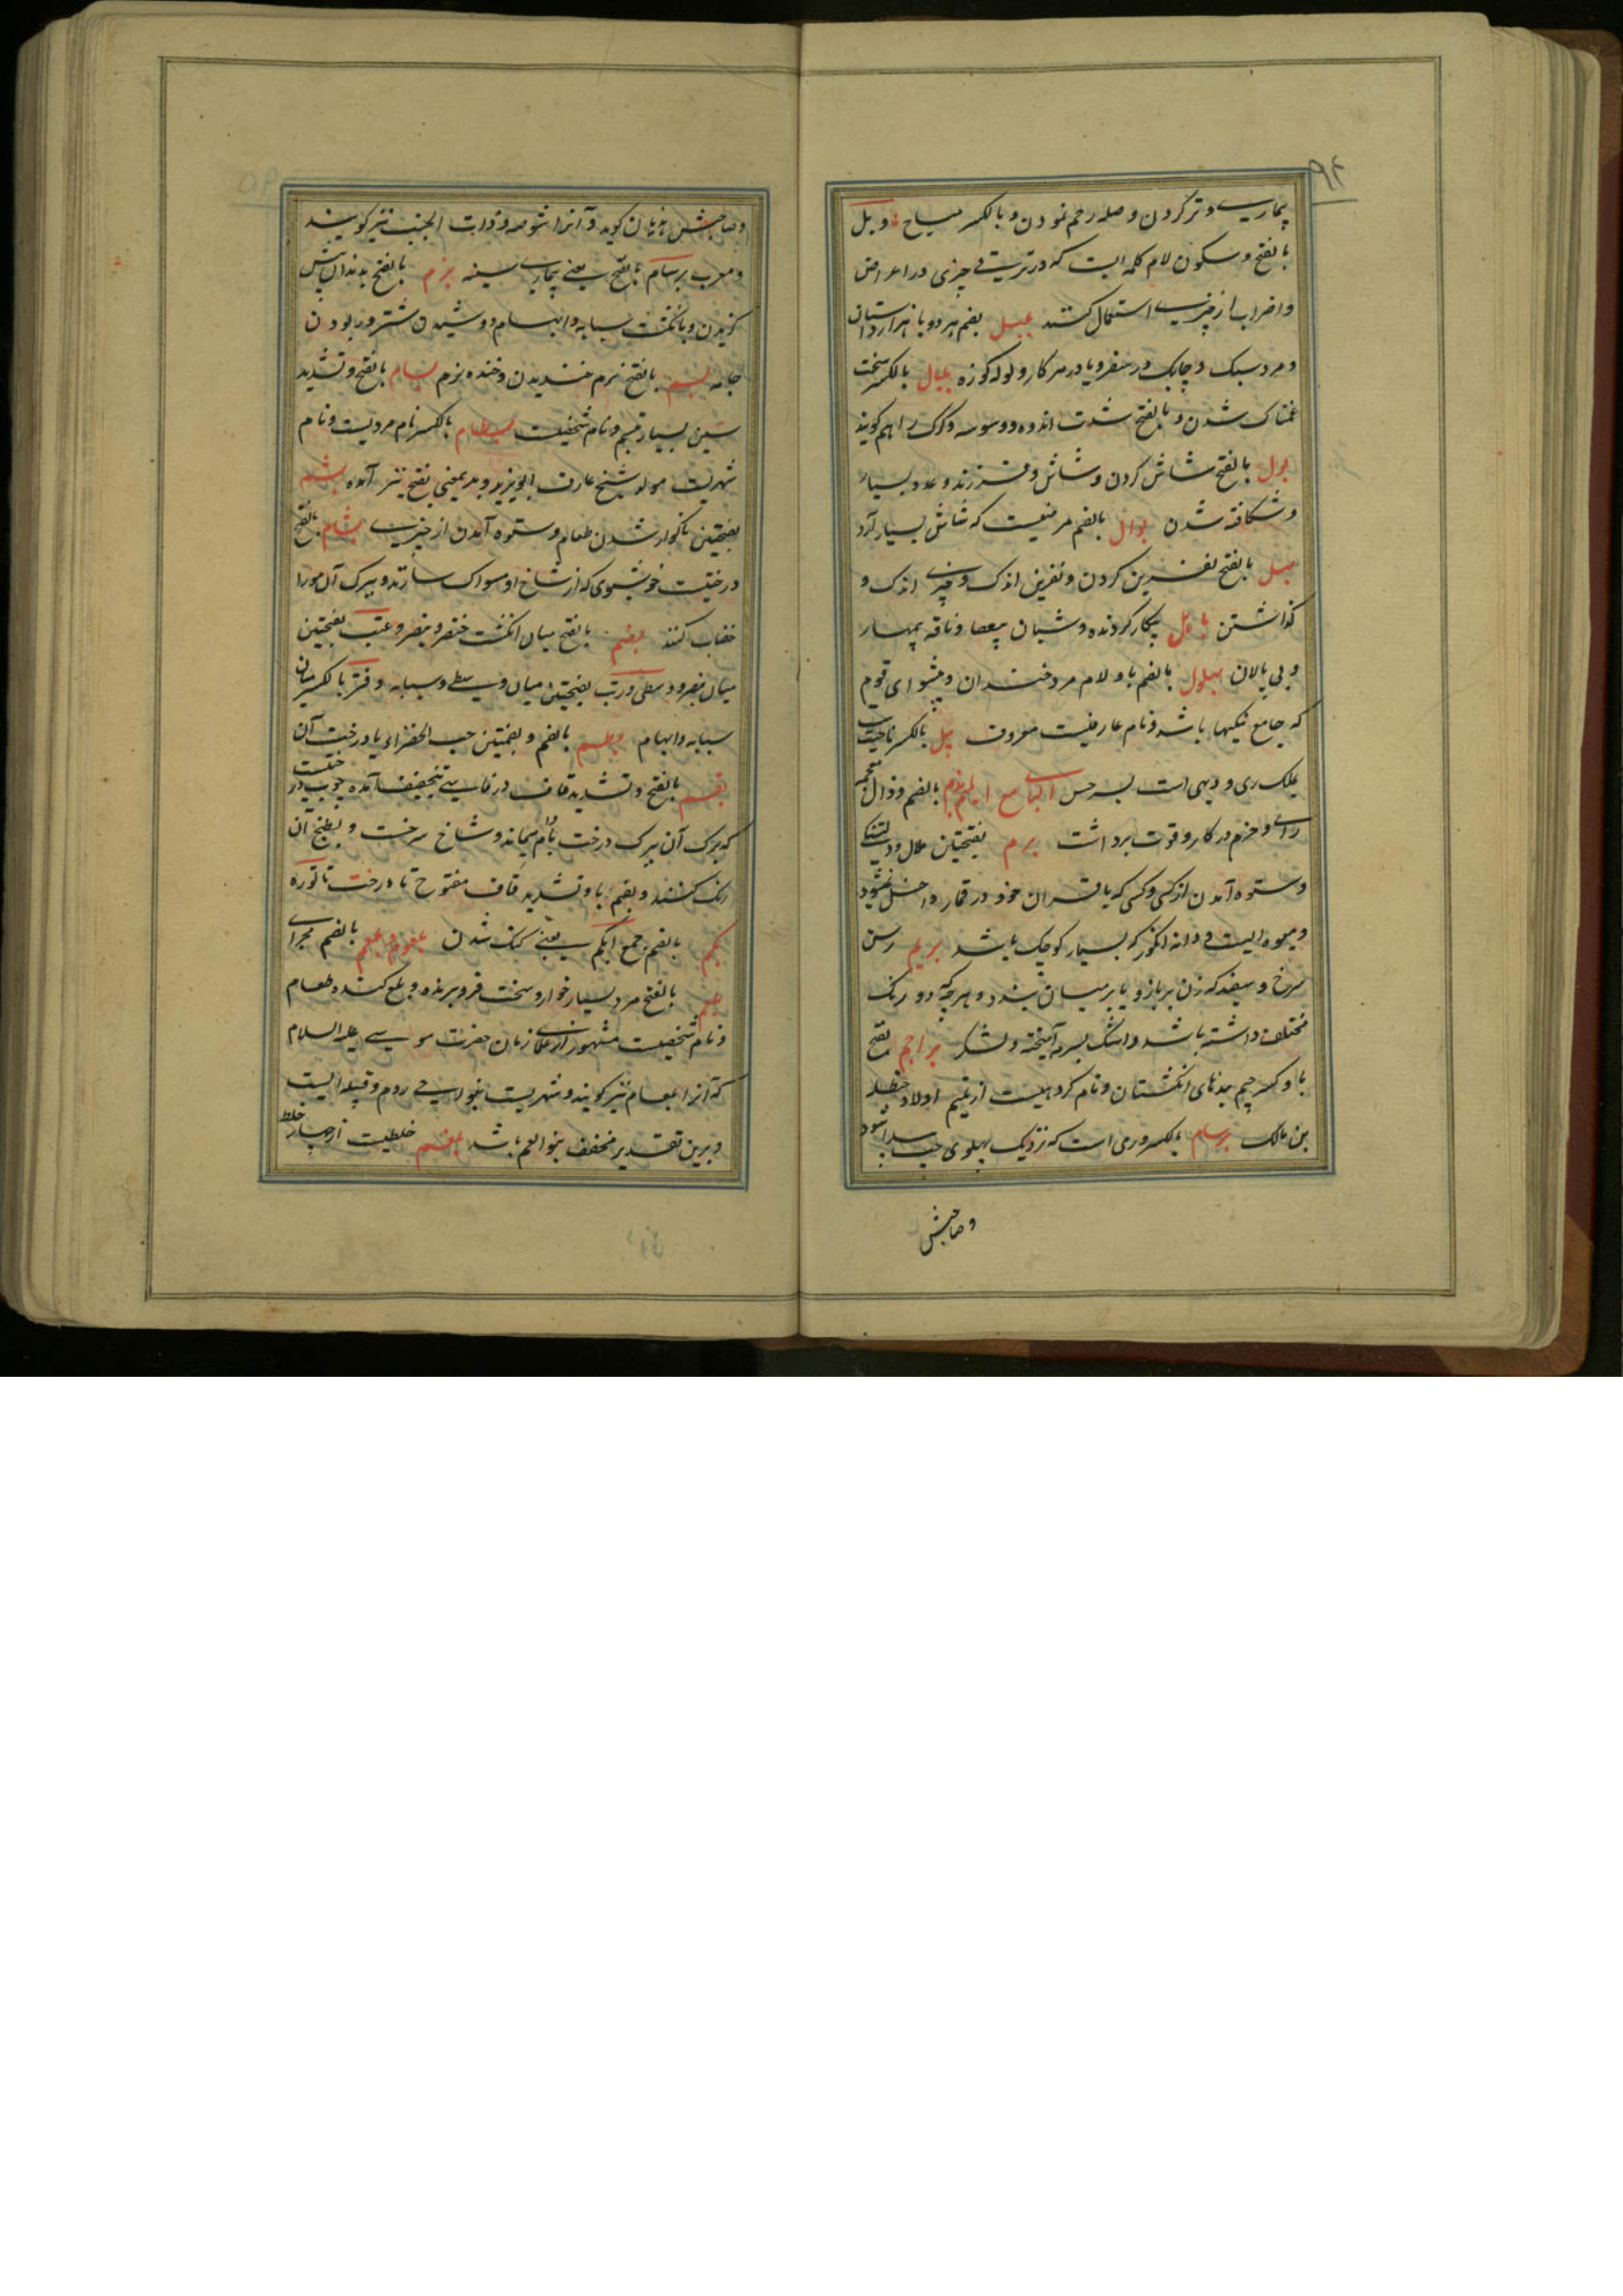 ۹۴
بیماری و تر کردن و صله رحم نمودن و بالکسر مباح و بل
بالفتح و سکون لام کلمه ایست که در ترتیب چیزی در اعراض
و اضراب از چیزی استعمال کنند بلبل بضم هر دو با هزار داستان
و مرد سبک و چابک در سفر و یا در هر کار و لوله کوزه بلبال بالکسر سخت
غمناک شدن و بالفتح شدت اندوه و وسوسه و کرک را هم کویند
بول بالفتح شاش کردن و شاش و فرزند و عدد بسیار
و شکافته شدن بوال بالضم مرضیست که شاش بسیار آرد
بهل بالفتح نفرین کردن و نفرین اندک و چیزی اندک و
کذاشتن باهل بیکار کردنده و شبان بیعصا و ناقه بیمهار
و بی پالان بهلول بالضم با و لام مرد خندان و پیشوای قوم
که جامع نیکیها باشد و نام عارفیست معروف بیل بالکسر ناحیت
بملک ری و دیهی است بسرخس البا مع المیم بذم بالضم و ذال معجمه
رای و حزم در کار و قوت برداشت برم بفتحتین ملال و دلتنکی
و ستوه آمدن از کسی و کسی که با قران خود در قمار داخل نشود
و میوه ایست و دانه انکور که بسیار کوچک باشد بریم رسن
سرخ و سفید که زن بر بازو یا بر میان بندد و هرچه دو رنک
مختلف داشته باشد و اشک بسرمه آمیخته و لشکر براجم بفتح
با و کسر جیم بندهای انکشتان و نام کروهیست از بنی تمیم اولاد حنظله
بن مالک برسام بالکسر ورمی است که نزدیک پهلوی چپ پیدا شود
وصاحبش
وصاحبش هذیان کوید و آنرا شوصه و ذات الجنب نیز کویند
و معرب برسام بالفتح یعنی بیماری سینه بزم بالفتح بدندان پیش
کزیدن و بانکشت سبابه و ابهام دوشیدن شتر و ربودن
جامه بسم بالفتح نرم خندیدن و خنده نرم بسام بالفتح و تشدید
سین بسیار تبسم و نام شخصیست بسطام بالکسر نام مردیست و نام
شهریست مولد شیخ عارف ابویزید و بدین معنی بفتح نیز آمده بشم
بفتحتین ناکوارد شدن طعام و ستوه آمدن از چیزی بشام بالفتح
درختیست خوشبوی که از شاخ او مسواک سازند و ببرک آن مو را
خضاب کنند بصم بالضم میان انکشت خنصر و بنصر و عتب بفتحتین
میان بنصر و وسطی و رتب بفتحتین میان وسطی و سبابه و فتر بالکسر میان
سبابه و ابهام بطم بالضم و بضمتین حب الخضراء یا درخت آن
بقم بالفتح و تشدید قاف در فارسی بتخفیف آمده چوب درختیست
که برک آن ببرک درخت بادام میماند و شاخ سرخست و بطبخ آن
رنک کنند و بضم با و تشدید قاف مفتوح تا درخت تاتوره
بکم بالضم جمع ابکم یعنی کنک شدن بلعوم و بلعم بالضم مجرای
بلعم بالفتح مرد بسیار خوار و سخت فرو برنده و بلع کننده طعام
و نام شخصیست مشهور از علمای زمان حضرت موسی علیه السلام
که آنرا بلعام نیز کویند و شهریست بنواحی روم و قبیله ایست
و برین تقدیر مخفف بنوالعم باشد بلغم خلطیست از چهار خلط